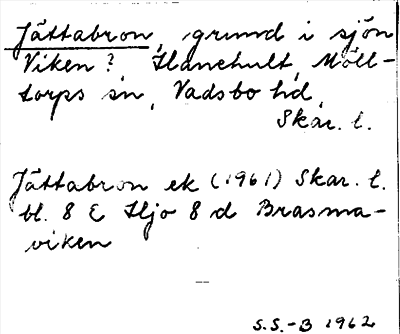 Jättabron, grund i sjön
Viken?, Hanehult, Möll-
torps sn, Vadsbo hd,
Skar. l.
Jättabron ek (1961) Skar. l.
bl. 8 E Hjo 8 d Brasma-
viken
—
S.S.-B 1962